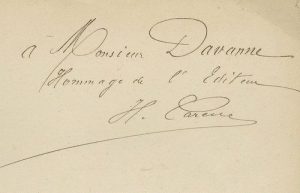 à Monsieur Davanne
Hommage de l'Editeur
H.